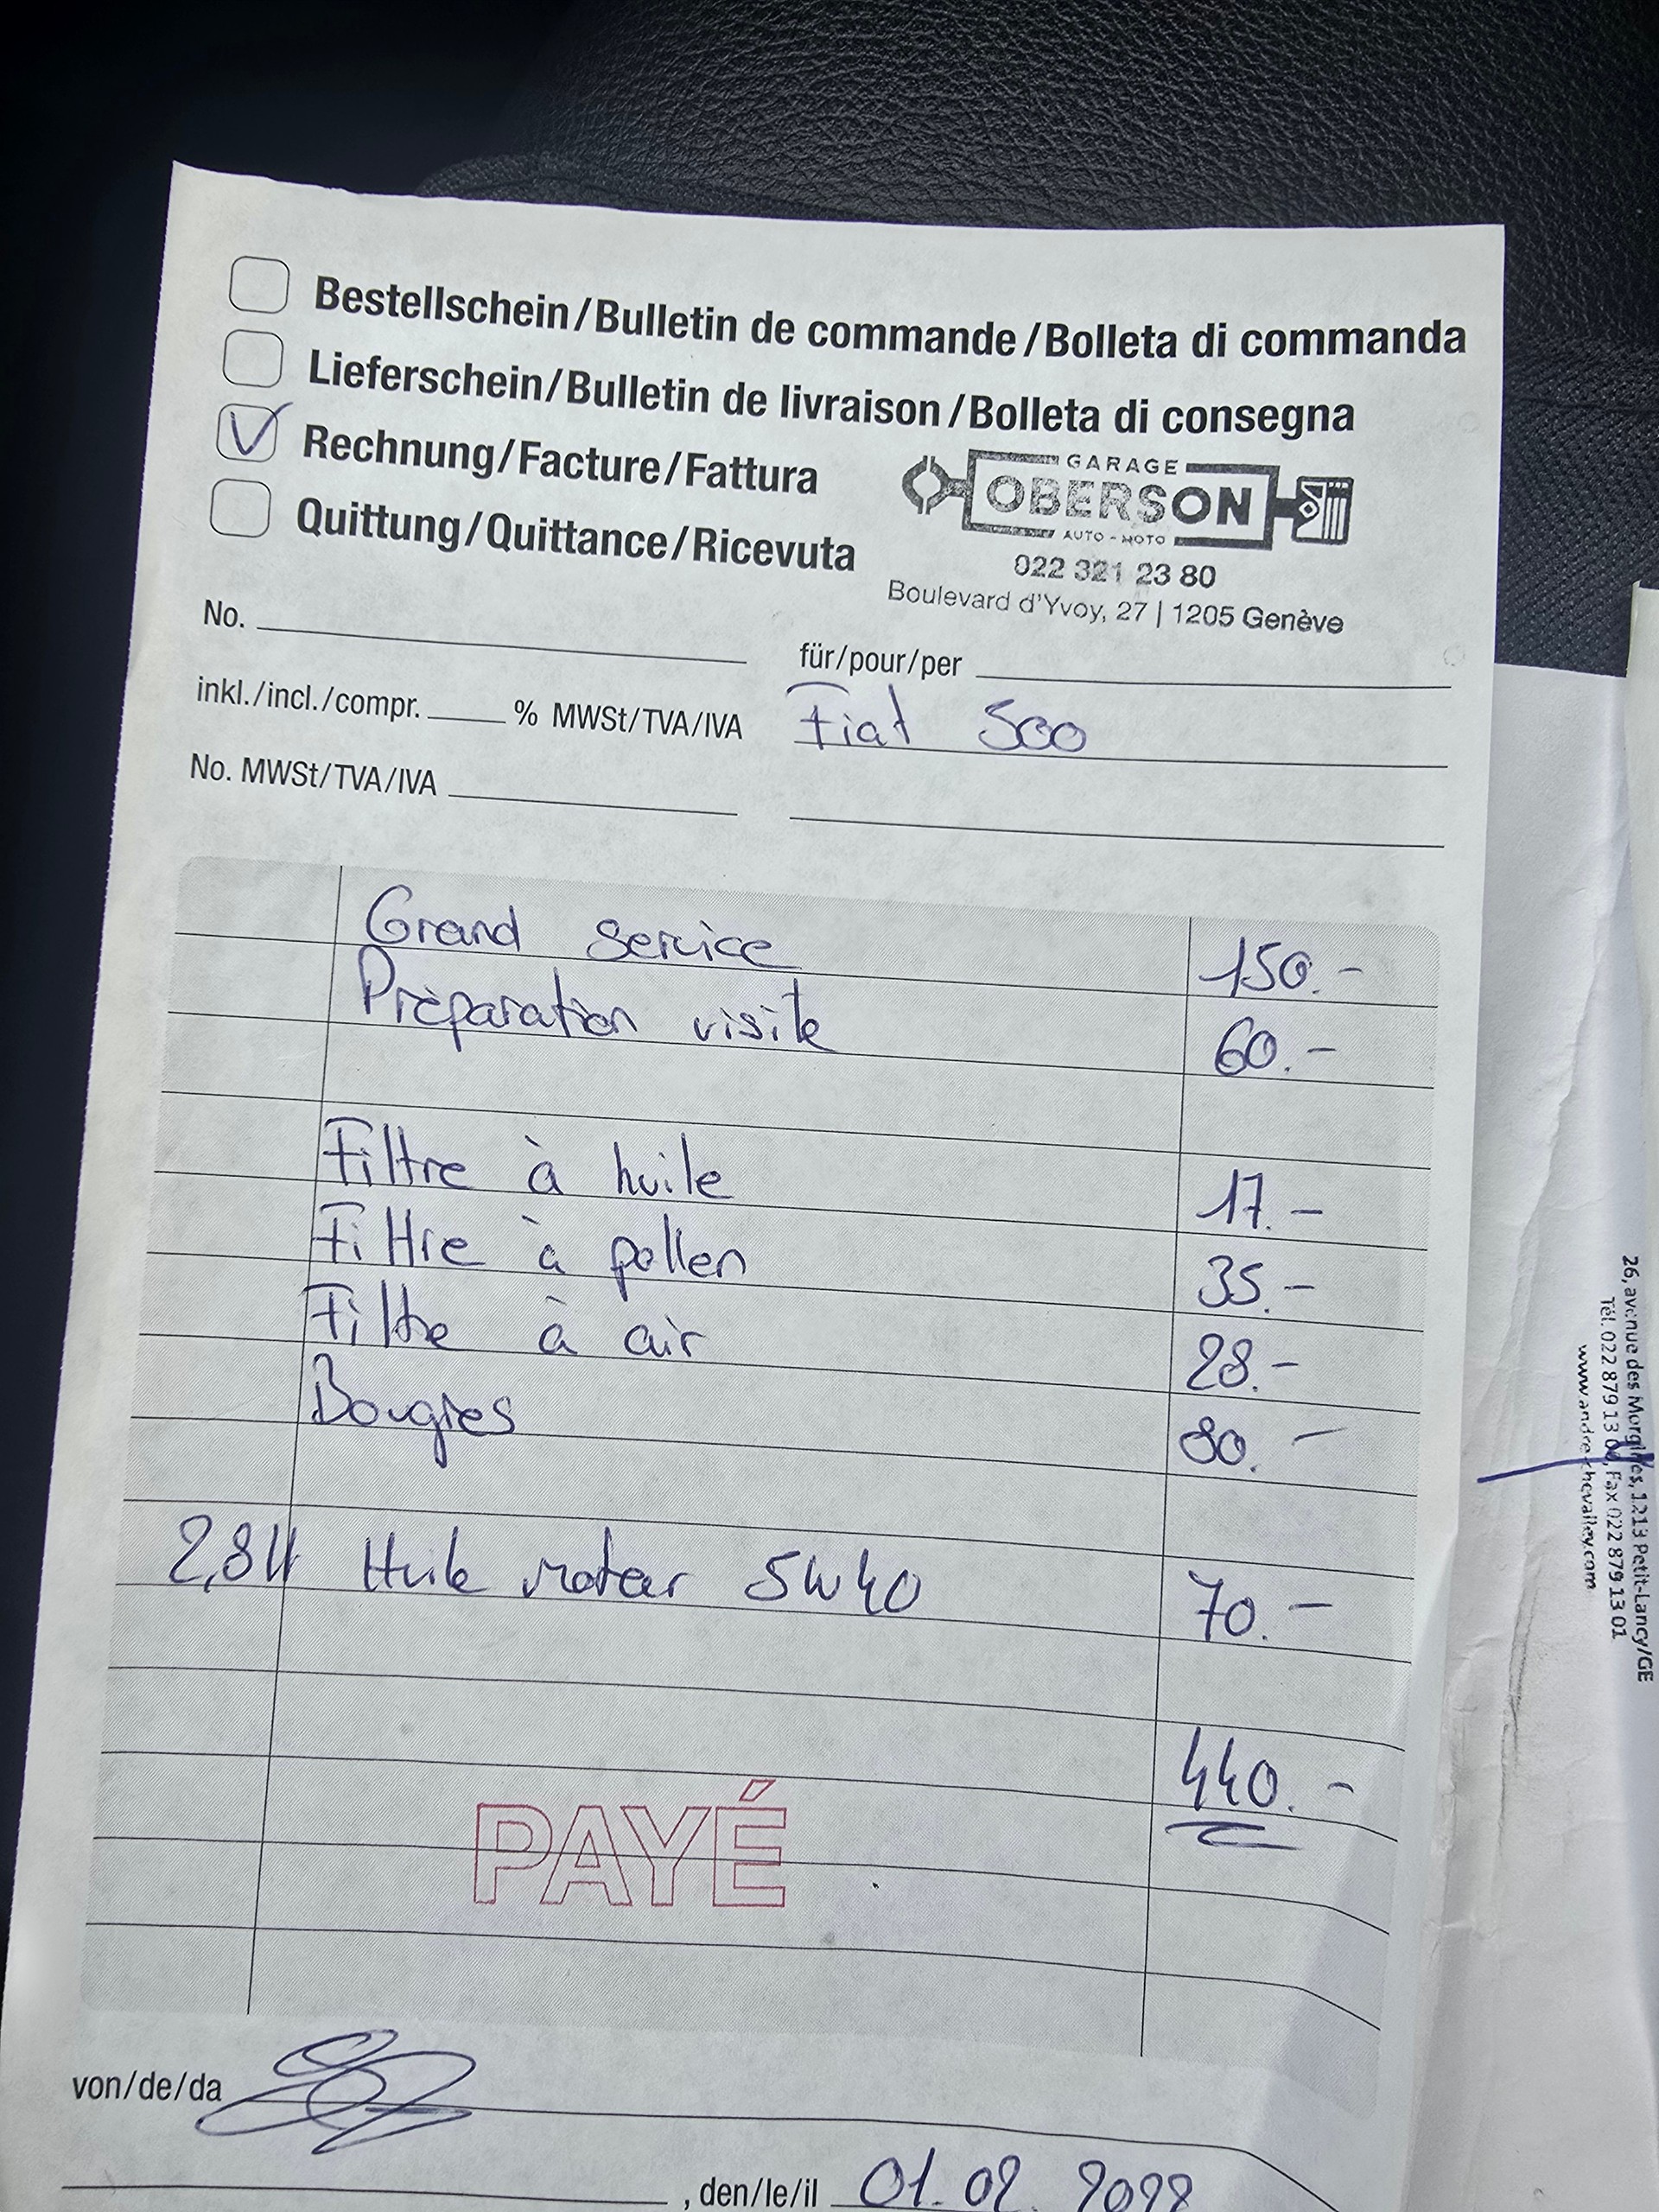 Bestellschein/Bulletin de commande/Bolleta di commanda
Lieferschein/Bulletin de livraison/Bolleta di consegna
Rechnung/Facture/Fattura
Quittung/Quittance/Ricevuta
GARAGE
OBERSON
AUTO - MOTO
022 321 23 80
Boulevard d'Yvoy, 27 | 1205 Genève
No.
für/pour/per
inkl./incl./compr. % MWSt/TVA/IVA
Fiat 500
No. MWSt/TVA/IVA
Grand service 150.-
Préparation visite 60.-
Filtre à huile 17.-
Filtre à pollen 35.-
Filtre à air 28.-
Bougies 80.-
2,8 Huile moteur 5W40 70.-
440.-
PAYÉ
von/de/da
, den/le/il 01.02.2022
26, avenue des Morgines, 1213 Petit-Lancy/GE
Tél. 022 879 13 00, Fax 022 879 13 01
www.andre-chevalley.com